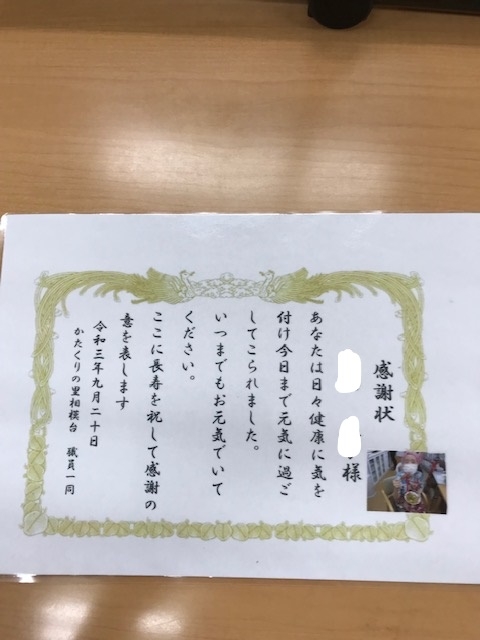 感謝状
様
あなたは日々健康に気を
付け今日まで元気に過ご
してこられました。
いつまでもお元気でいて
ください。
ここに長寿を祝して感謝の
意を表します
令和三年九月二十日
かたくりの里相模台 職員一同